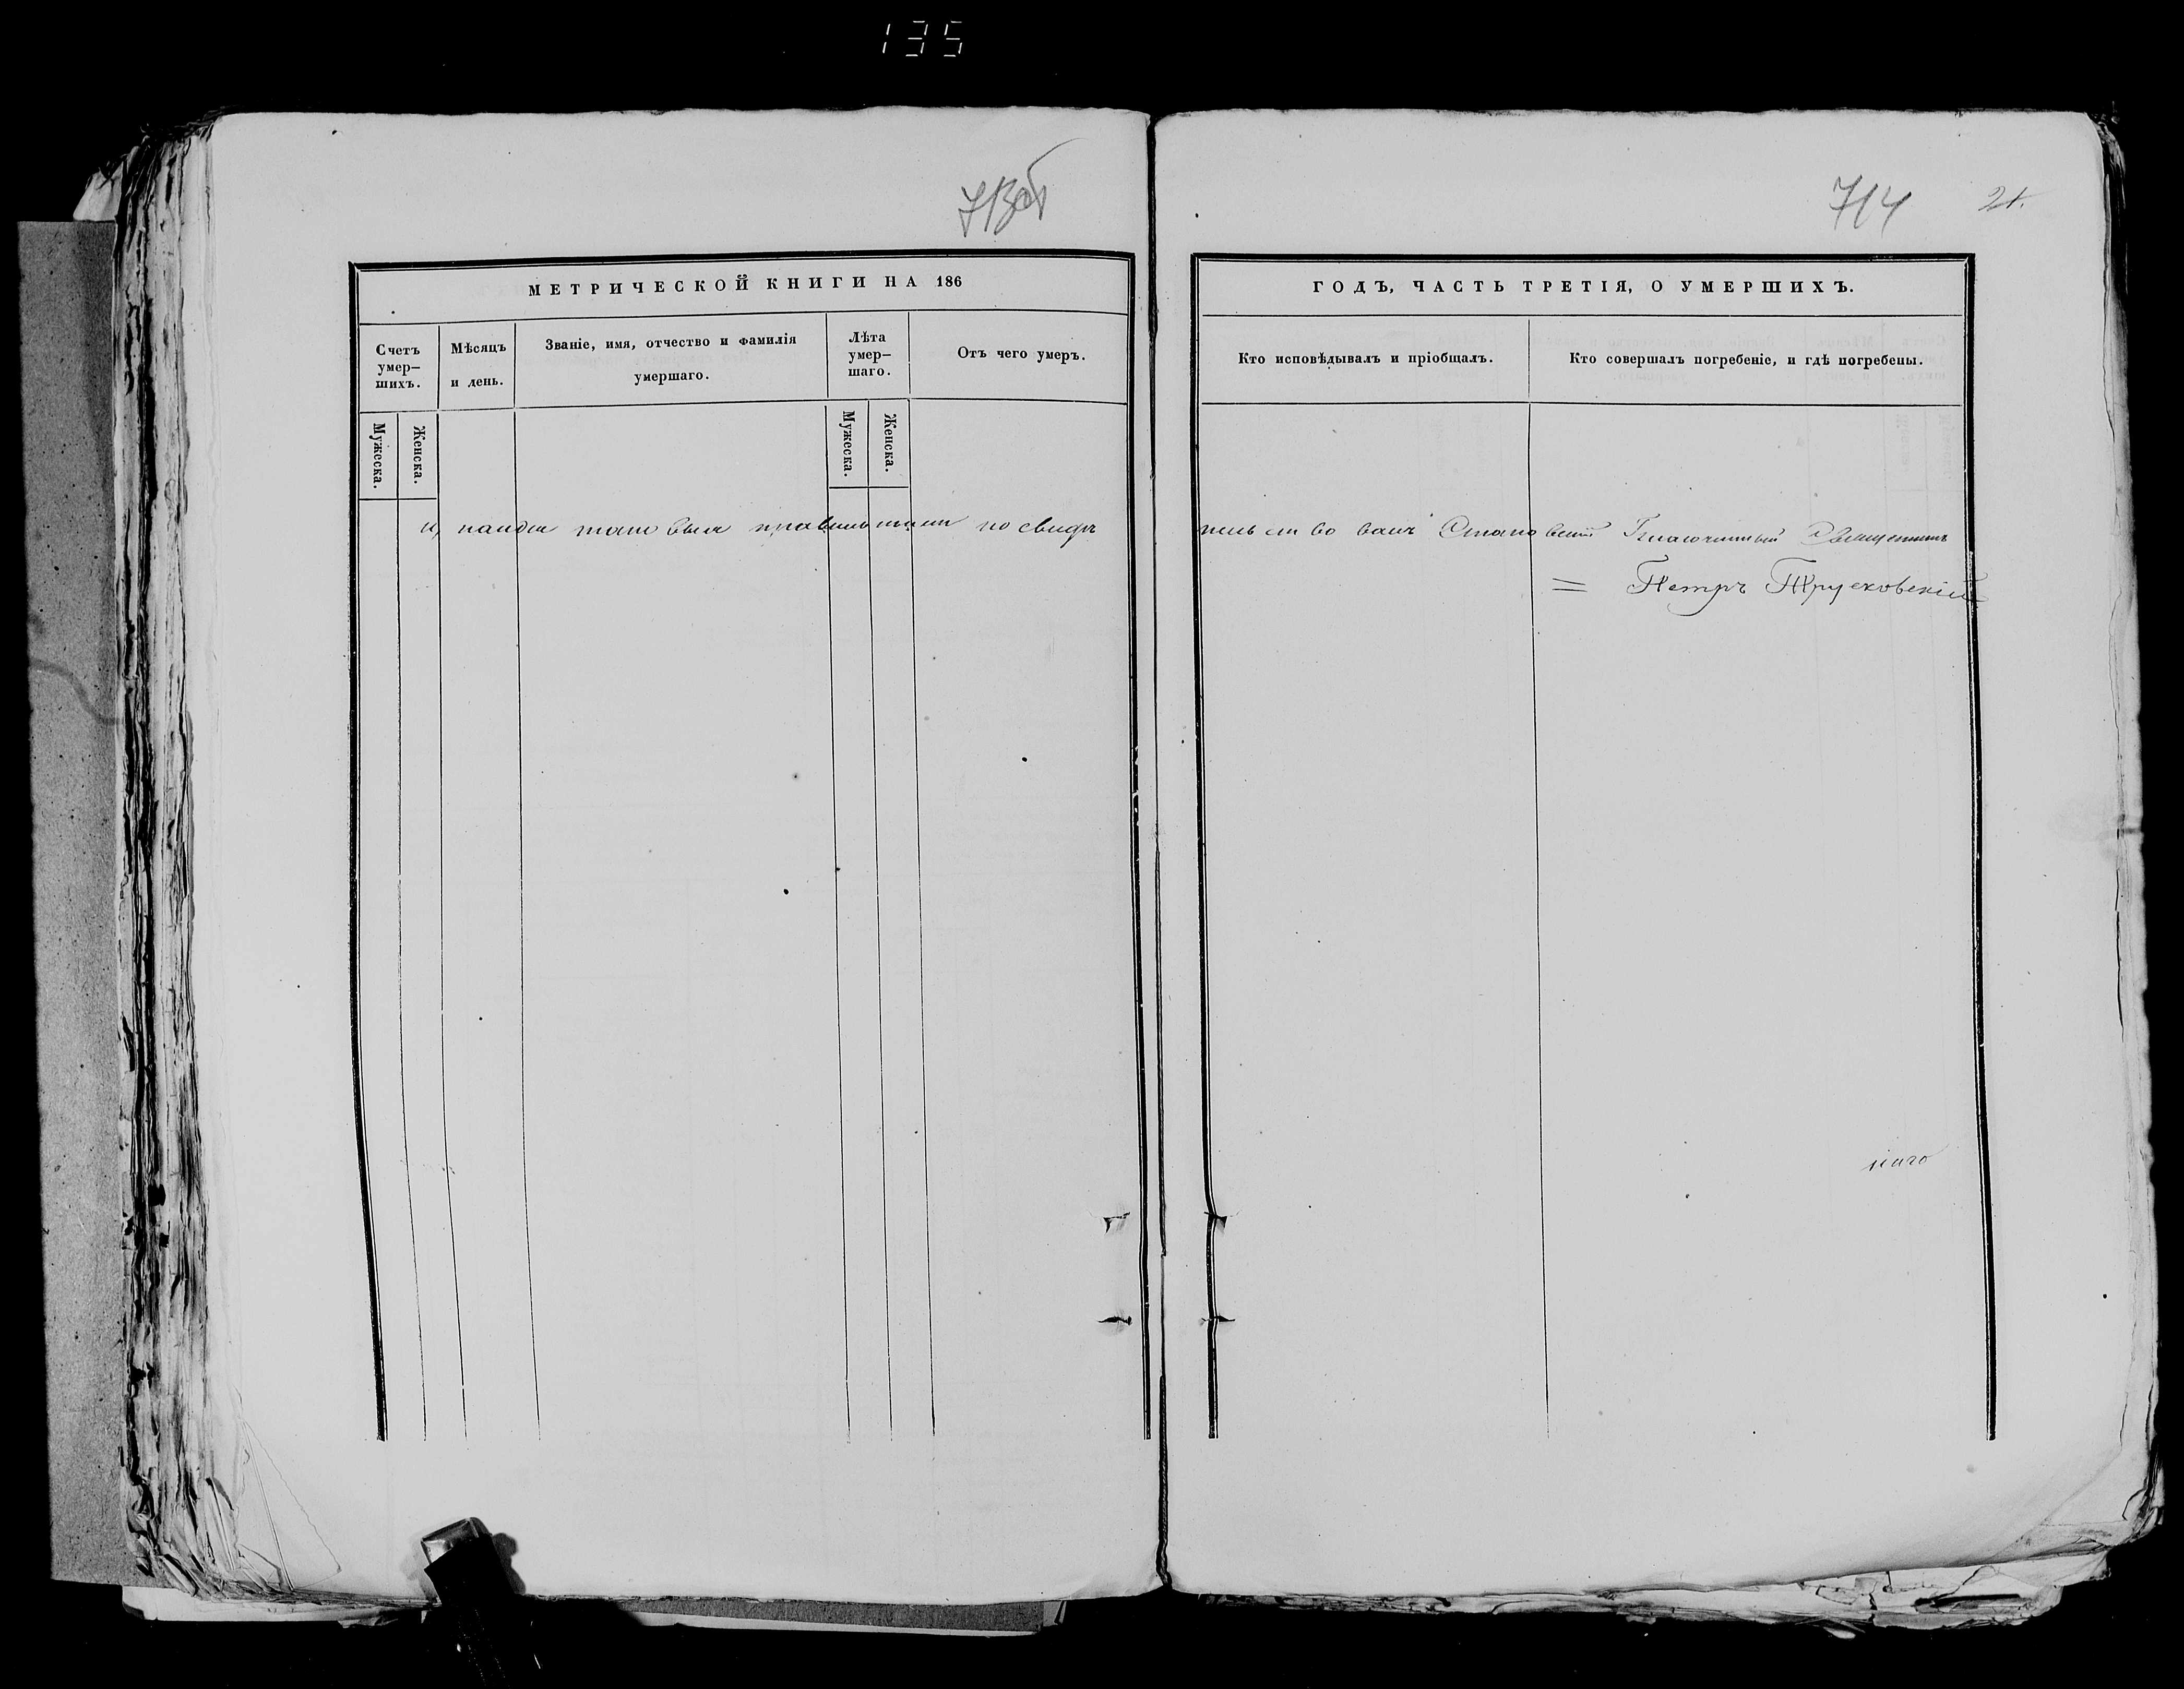 135
713об
714 21.
МЕТРИЧЕСКОЙ КНИГИ НА 186
ГОДЪ, ЧАСТЬ ТРЕТІЯ, О УМЕРШИХЪ.
Счетъ умер–шихъ.
Мѣсяцъ и день.
Званіе, имя, отчество и фамилія умершаго.
Лѣта умер–шаго.
Отъ чего умеръ.
Кто исповѣдывалъ и пріобщалъ.
Кто совершалъ погребеніе, и гдѣ погребены.
Мужеска.
Женска.
Мужеска.
Женска.
по свидѣтельствовалъ Благочинный Священникъ
= Петръ Трусковскій